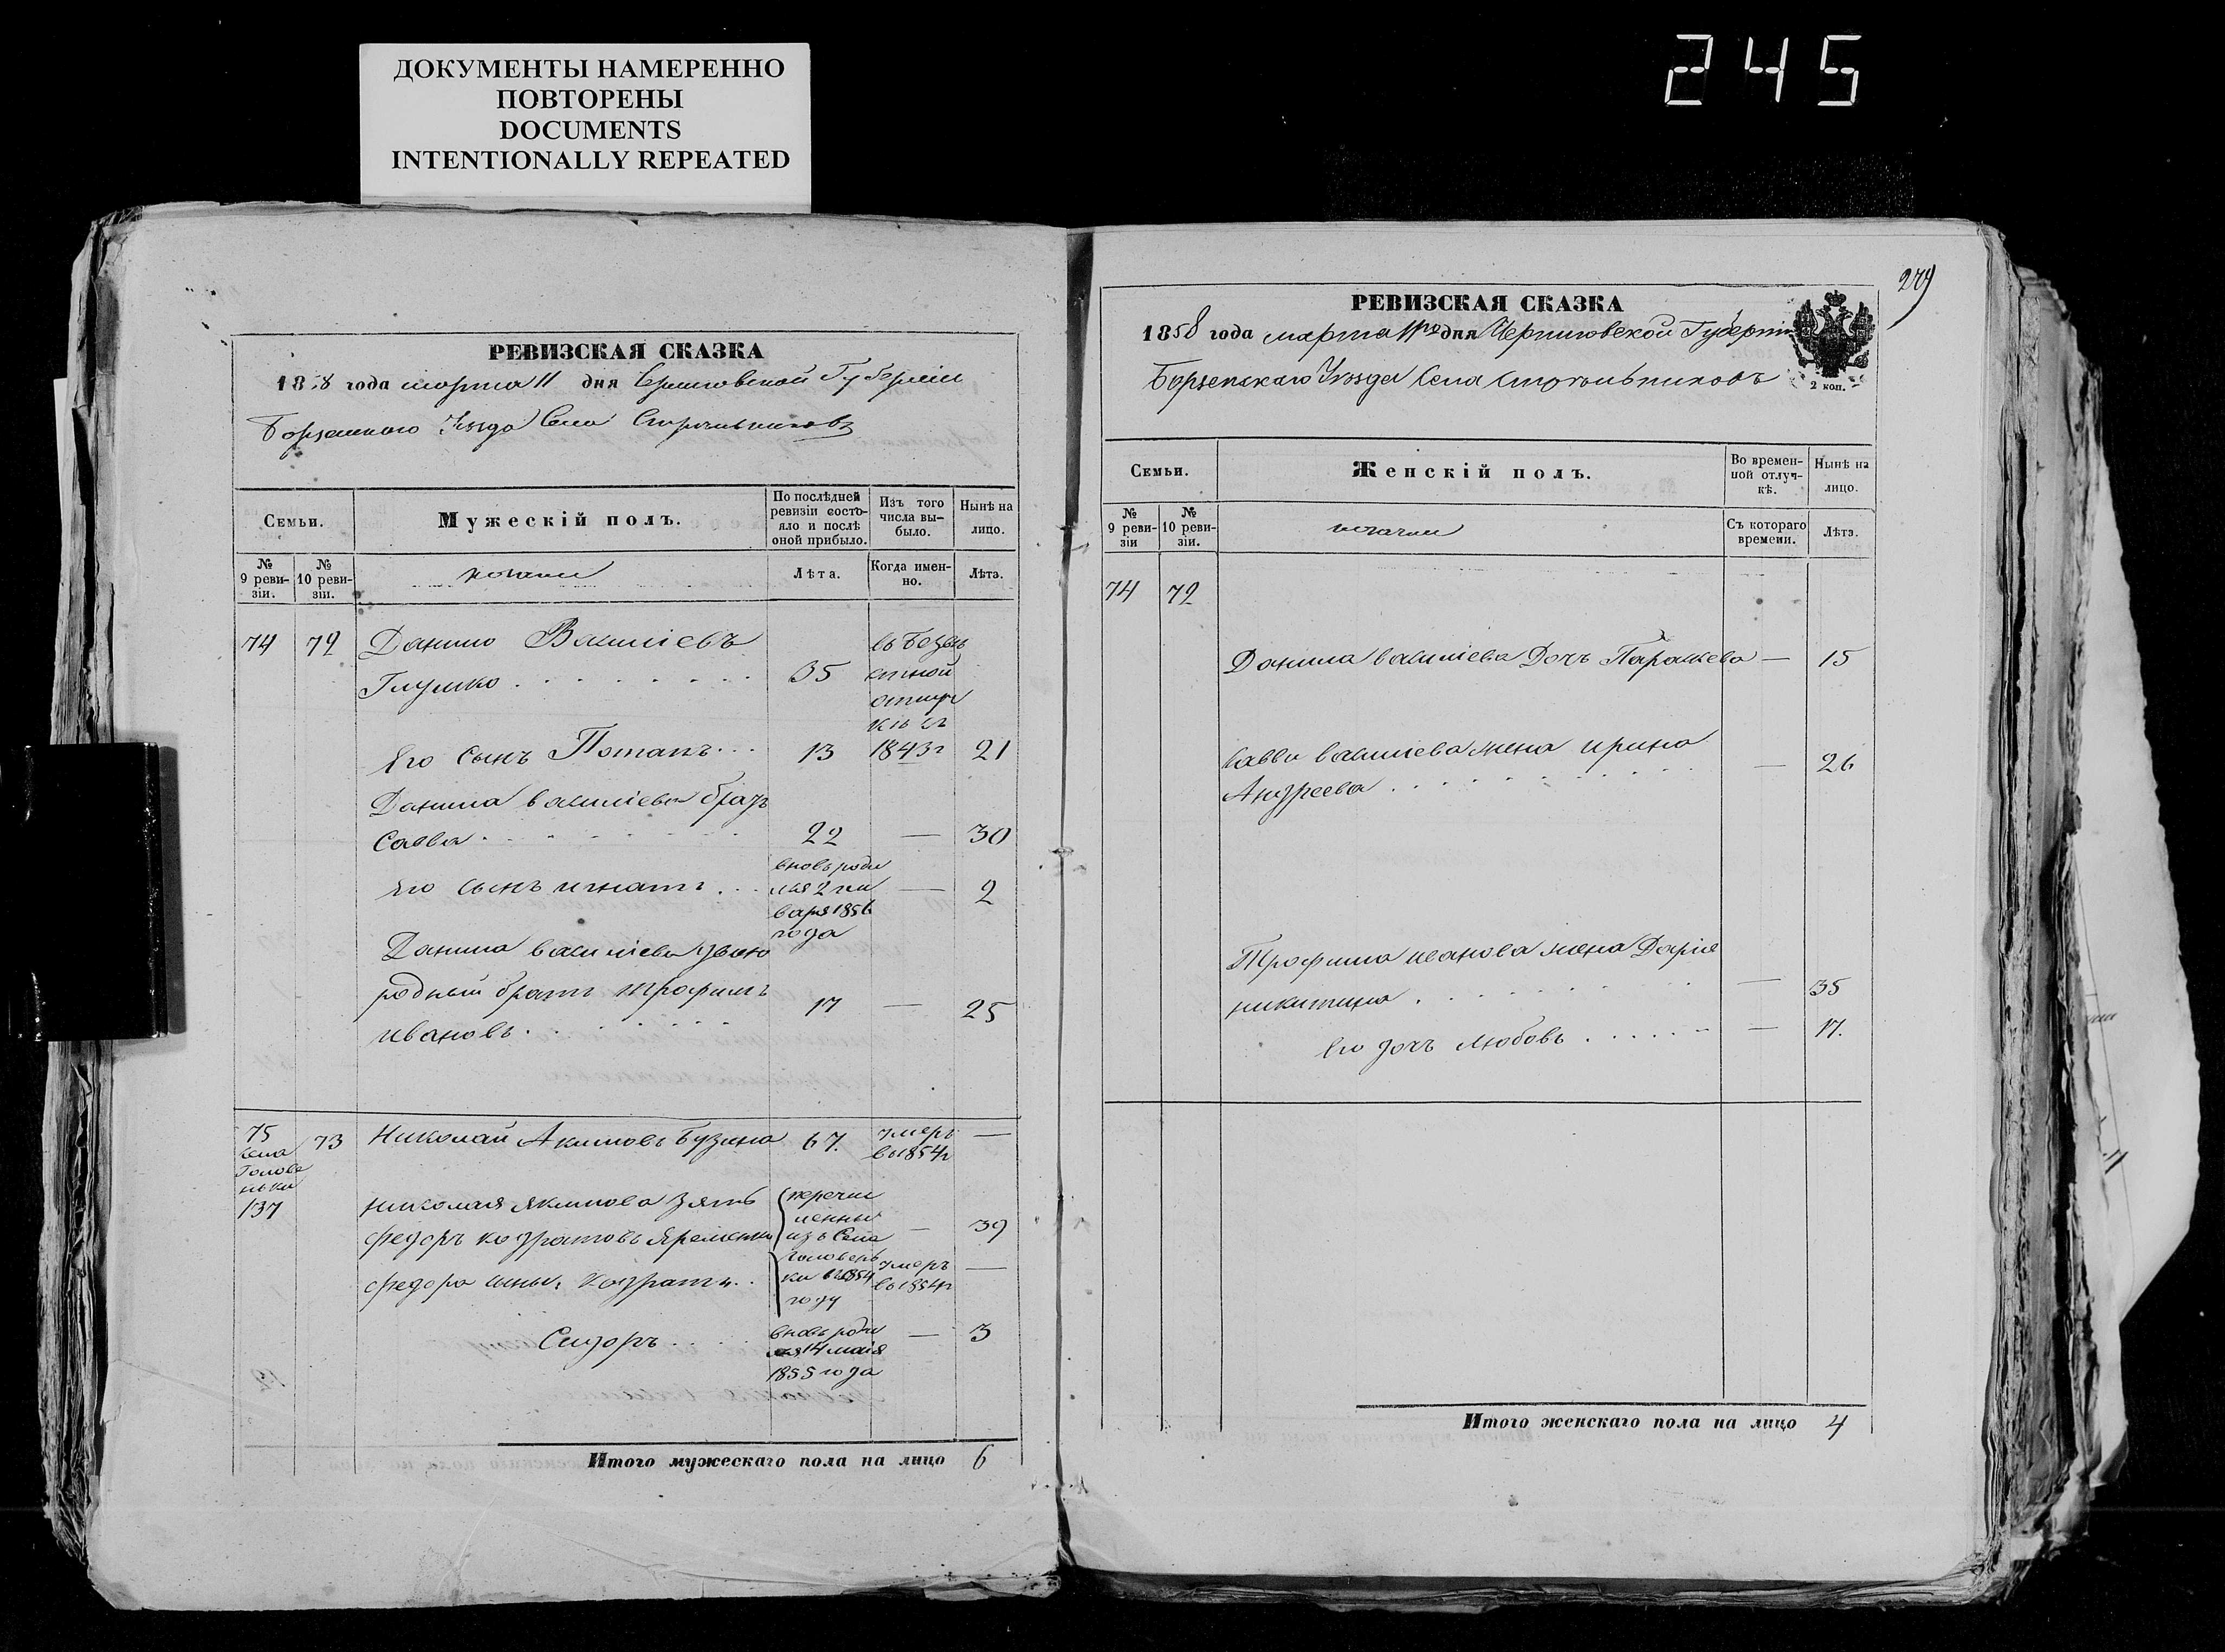 ДОКУМЕНТЫ НАМЕРЕННО
ПОВТОРЕНЫ
DOCUMENTS
INTENTIONALLY REPEATED
245
РЕВИЗСКАЯ СКАЗКА
1858 года марта 11 дня Черниговской Губерніи
Борзенского Уезда Села
Семьи.
Мужескій полъ.
По послѣдней ревизіи состояло и послѣ оной прибыло.
Изъ того числа выбыло.
Нынѣ на лицо.
№ 9 ревизіи.
№ 10 ревизіи.
Лѣта.
Когда именно.
Лѣта.
74 72 Данило Василіевъ
Глушко 35 въ безвѣстной отлучкѣ съ 1843г
Его сынъ Потапъ 13 21
Данила Василіева братъ
Савва 22 — 30
Его сынъ Игнатъ вновь родился 2 января 1856 года — 2
Данила Василіева двоюродный братъ Трофимъ
Ивановъ 17 — 25
75 Села Головеньки 137
73 Николай Акимовъ Бузина 67. умеръ въ 1854г —
Николая Якимова зять
Федоръ Кодратовъ Яременко перечисленный изъ Села — 39
Федора сыны: Кодратъ въ 1854 году умеръ въ 1854г —
Сидоръ вновь родился 14 маія 1855 года — 3
Итого мужескаго пола на лицо 6
РЕВИЗСКАЯ СКАЗКА
1858 года марта 11го дня Черниговской Губерніи
Борзенскаго Уезда Села
2 коп.
Семьи.
Женскій полъ.
Во временной отлучкѣ.
Нынѣ на лицо.
№ 9 ревизіи
№ 10 ревизіи.
Съ котораго времени.
Лѣта.
74 72
Данила Василіева Дочь Параскева — 15
Саввы Василіева жена Ирина
Андреева — 26
Трофима Иванова жена Дарія
Никитина — 35
Его дочь Любовь — 17.
Итого женскаго пола на лицо 4